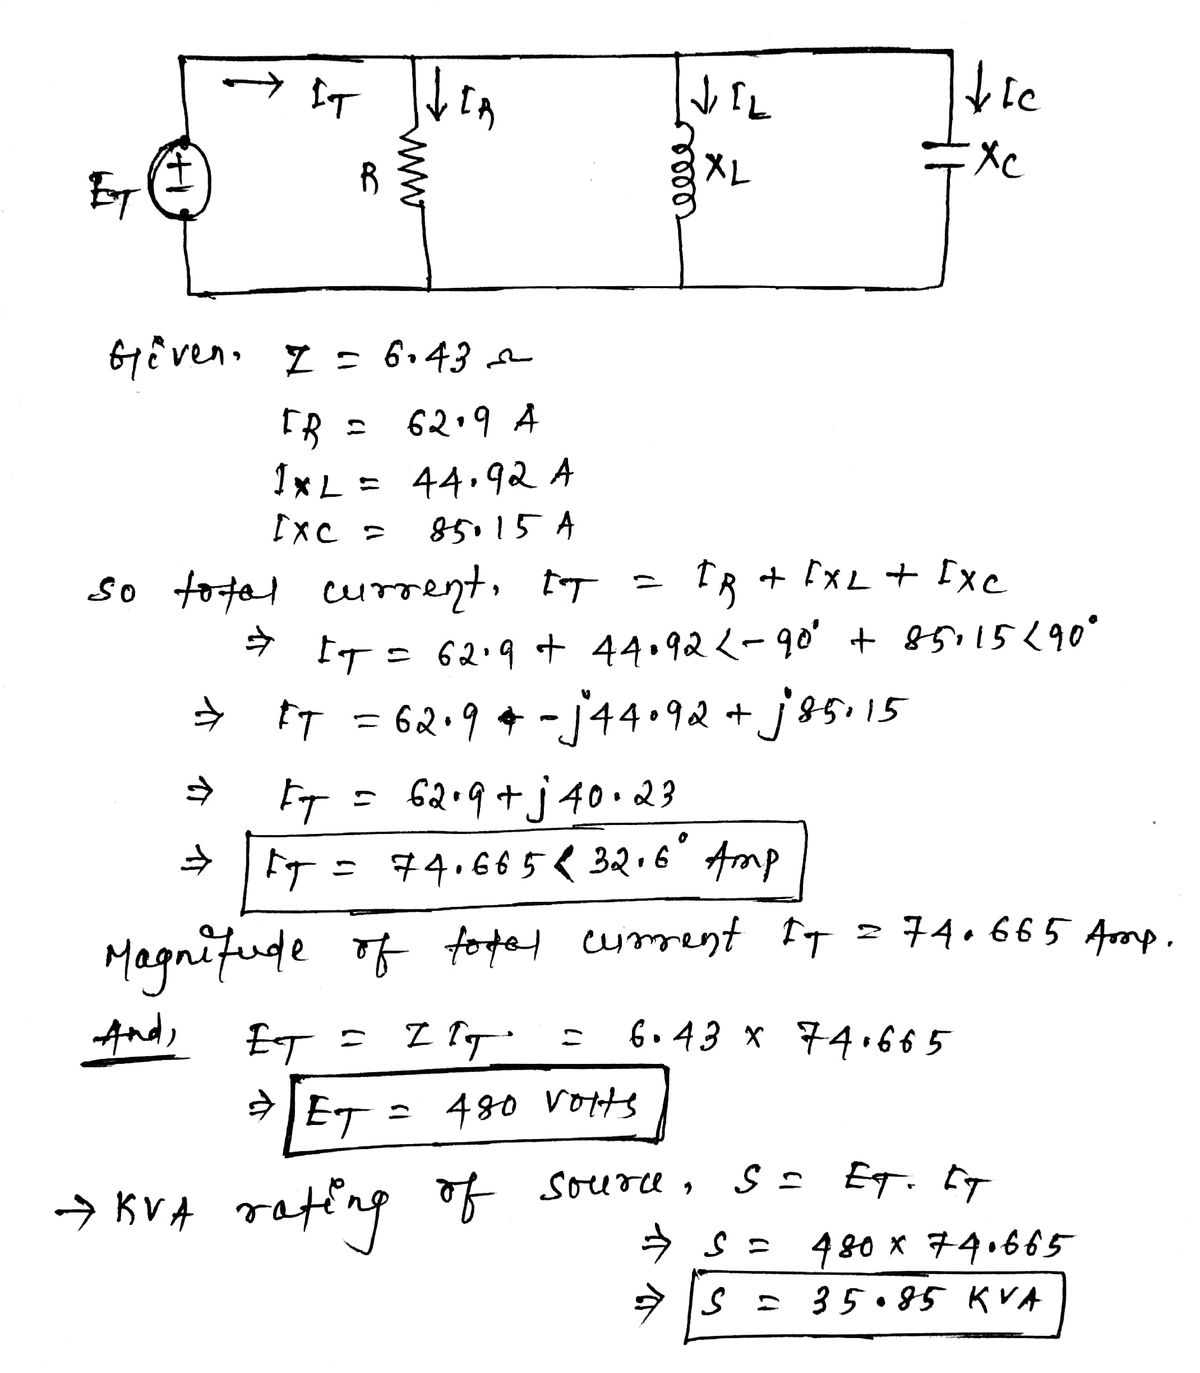 → IT
↓ IR
↓ IL
↓ IC
ET
+
R
XL
XC
Given. Z = 6.43 Ω
IR = 62.9 A
IXL = 44.92 A
IXC = 85.15 A
So total current, IT = IR + IXL + IXC
⇒ IT = 62.9 + 44.92 < -90° + 85.15 < 90°
⇒ IT = 62.9 + - j44.92 + j85.15
⇒ IT = 62.9 + j 40.23
⇒ IT = 74.665 < 32.6° Amp
Magnitude of total current IT = 74.665 Amp.
And, ET = Z IT = 6.43 x 74.665
⇒ ET = 480 Volts
→ KVA rating of source, S = ET. IT
⇒ S = 480 x 74.665
⇒ S = 35.85 KVA